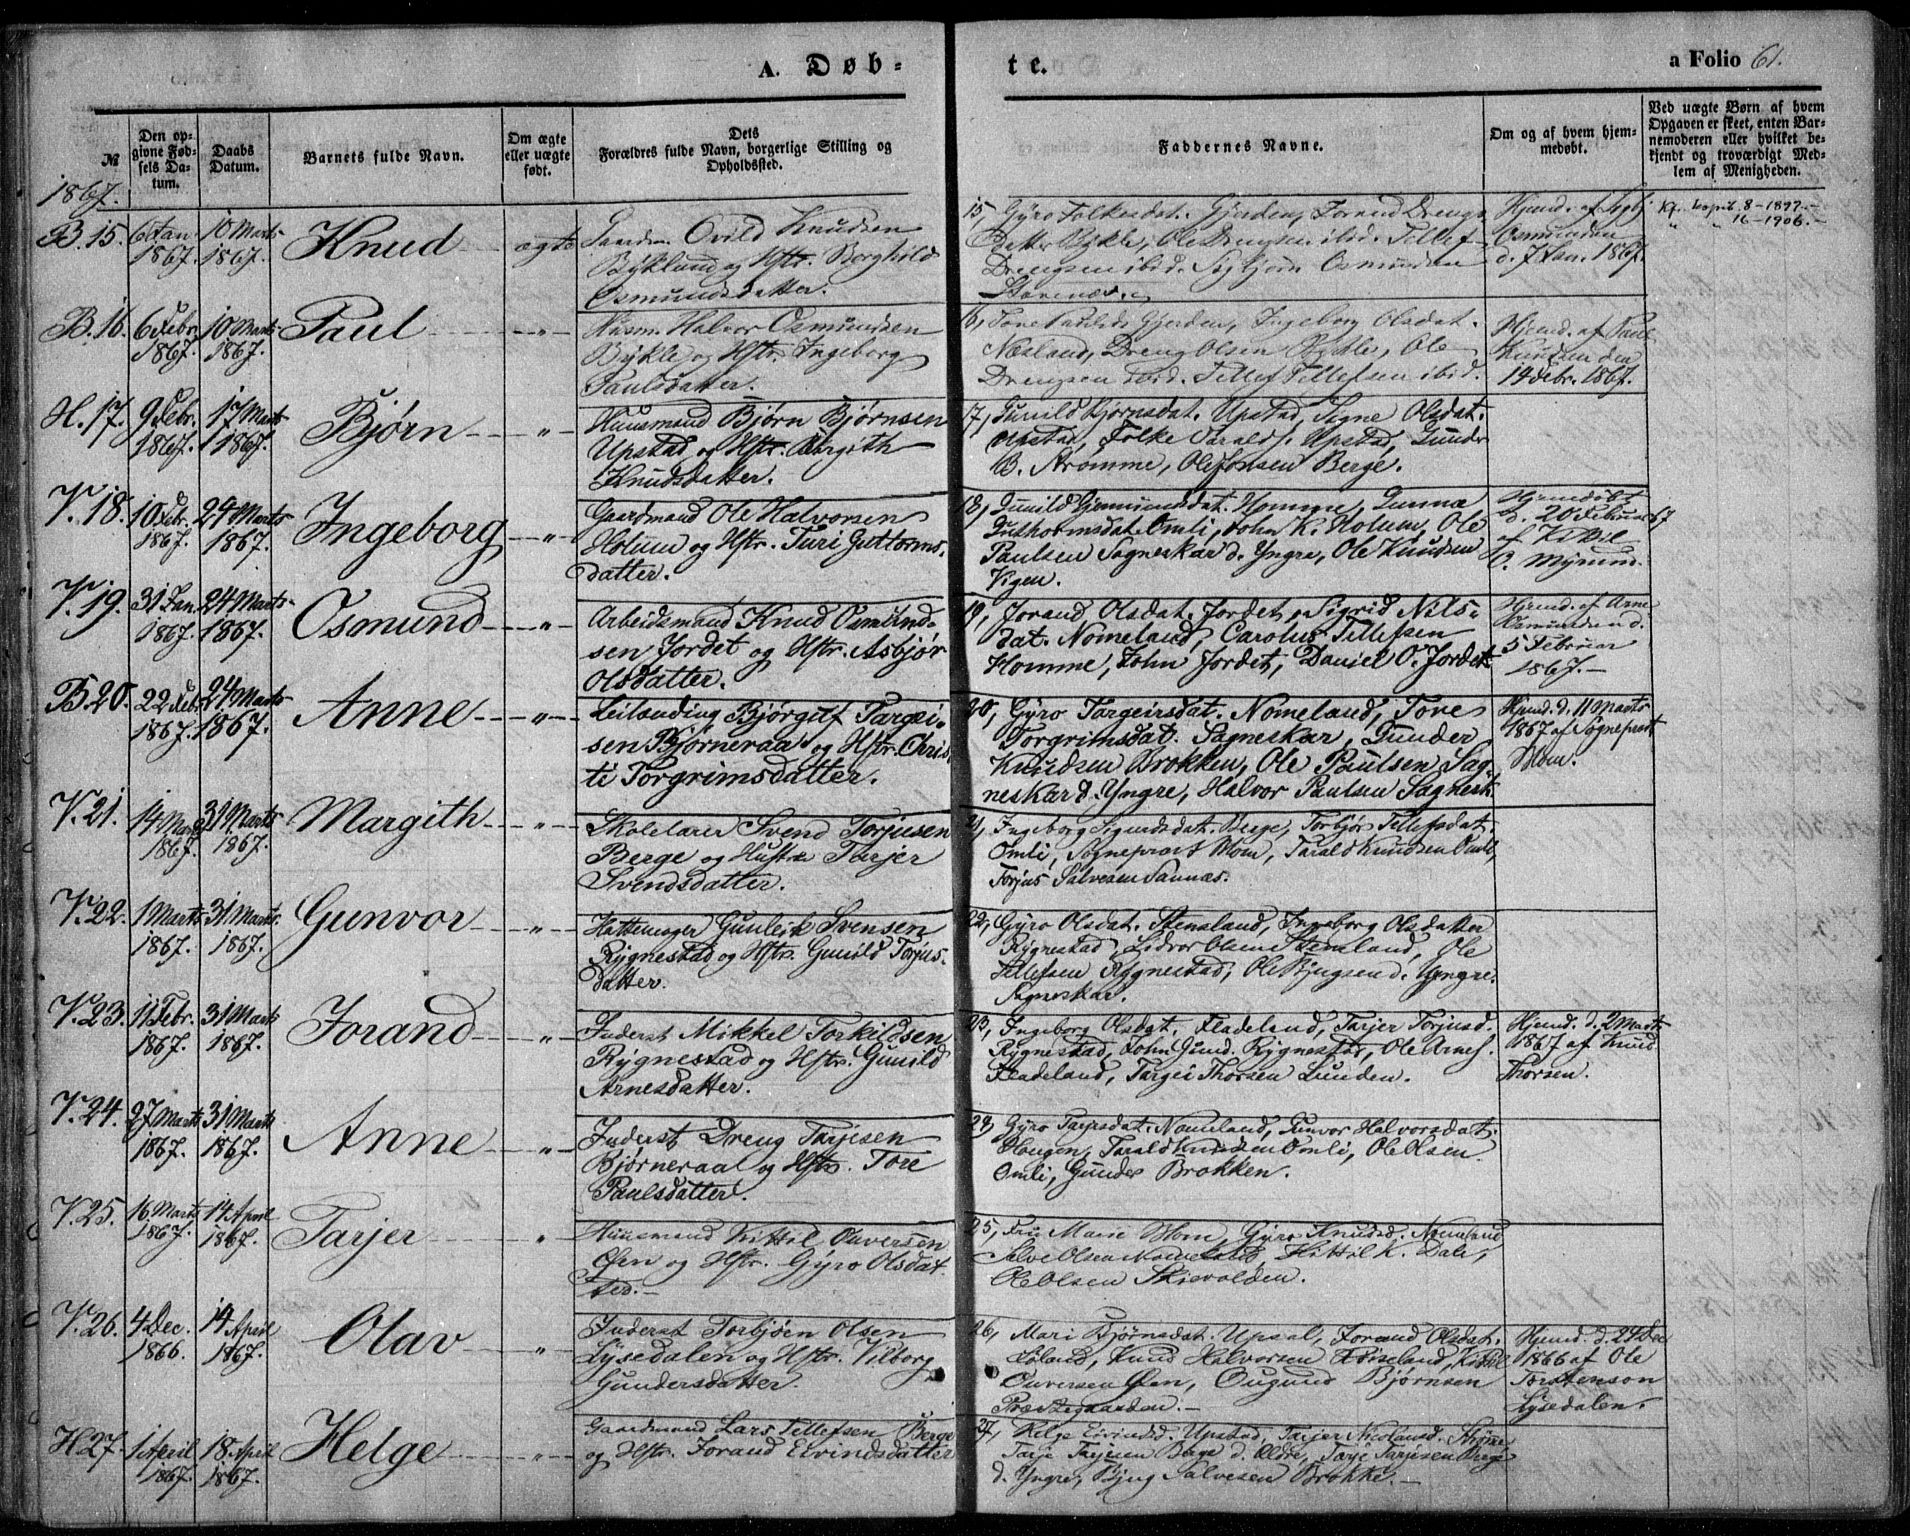 A. Døb-
te.
a Folio 61.
№
Den op-
givne Fød-
sels Da-
tum.
Daabs
Datum.
Barnets fulde Navn.
Om ægte
eller uægte
født.
Dets
Forældres fulde Navn, borgerlige Stilling og
Opholdssted.
Faddernes Navne.
Om og af hvem hjem-
medøbt.
Ved uægte Børn af hvem
Opgaven er skeet, enten Bar-
nemoderen eller hvilket be-
kjendt og troværdigt Med-
lem af Menigheden.
1867.
B. 15. 6 Jan. 1867. 10 Marts 1867. Knud ægte
Ovild Knudsen
Bykland og Hstr. Borghild
Osmundsdatter.
15, Gyro Folkesdat. Gjerden, Jorand Drengs
datter Bykle, Ole Drengsen ibid. Tellef
Drengsen ibid. Sigbjørn Osmundsen
Hjemd. af Sigbj.
Osmundsen
d. 7 Jan. 1867.
8-1897.-
16-1906.-
B. 16. 6 Febr. 1867. 10 Marts 1867. Paul "
Husm. Halvor Osmundsen
Bykle og Hstr. Ingeborg
Paulsdatter.
16, Tone Paulsd. Gjerden, Ingeborg Olsdat.
Næsland, Dreng Olsen Bykle, Ole
Drengsen ibid. Tellef Tellefsen ibid.
Hjemd. af Paul
Knudsen den
14 Febr. 1867.
H. 17. 9 Febr. 1867. 17 Marts 1867. Bjørn "
Huusmand Bjørn Bjørnsen
Upstad og Hstr. Birgith
Knudsdatter.
17, Gunild Bjørnsdat. Upstad, Signe Olsdat.
Upstad, Folke Taralds. Upstad, Gunder
B. Strømme, Ole Jonsen Berge.
V. 18. 10 Febr. 1867. 24 Marts 1867. Ingeborg "
Gaardmand Ole Halvorsen
Holum og Hstr. Turi Guttorms-
datter.
18, Gunild Gjermundsdat. Homme, Gunna
Guthormsdat. Omli, John K. Holum, Ole
Paulsen Sagneskar d. Yngre, Ole Knudsen
Vigen.
Hjemdøbt
d. 20 Februar 67
af Kittil
O. Myrum.
V. 19. 31 Jan. 1867. 24 Marts 1867. Osmund "
Arbeidsmand Knud Osmund-
sen Jordet og Hstr. Asbjør
Olsdatter.
19, Jorand Olsdat. Jordet, Sigrid Nils-
dat. Nomeland, Carolus Tellefsen
Homme, John Jordet, Daniel O. Jordet.
Hjemd. af Arne
Osmundsen d.
5 Februar
1867.-
B. 20. 22 Feb. 1867. 24 Marts 1867. Anne "
Leilænding Bjørgulf Targei-
sen Bjørneraa og Hstr. Chris-
ti Torgrimsdatter.
20, Gyro Targeirsdat. Nomeland, Tone
Torgrimsdat. Sagneskar, Gunder
Knudsen Brokken, Ole Paulsen Sag-
neskar d. Yngre, Halvor Paulsen Sagnesk.
Hjemd. d. 11 Marts
1867 af Sogneprest
Mom.
V. 21. 14 Marts 1867. 31 Marts 1867. Margith "
Skolelærer Svend Torjusen
Berge og Hustr. Tarjer
Svendsdatter.
21, Ingeborg Sigurdsdat. Berge, Torbjør Tellefsdat.
Omli, Sogneprest Mom, Tarald Knudsen Omli,
Torjus Salvesen Sannæs.
V. 22. 1 Marts 1867. 31 Marts 1867. Gunvor "
Hattemager Gunleik Svensen
Rygnestad og Hstr. Gunild Torjus-
datter.
22, Gyro Olsdat. Stensland, Ingeborg Olsdatter
Rygnestad, Lidvor Olsen Stensland, Ole
Tellefsen Rygnestad, Ole Bjugsen d. Yngre
Sagneskar.
V. 23. 11 Febr. 1867. 31 Marts 1867. Jorand "
Inderst Mikkel Torkildsen
Rygnestad og Hstr. Gunild
Arnesdatter.
23, Ingeborg Olsdat. Fladeland, Tarjer Torjusd.
Rygnestad, John Gund. Rygnestad, Ole Arnes.
Fladeland, Targei Thorsen Lunden.
Hjemd. d. 2 Marts
1867 af Knud
Thorsen.
V. 24. 27 Marts 1867. 31 Marts 1867. Anne "
Inderst Dreng Tarjesen
Bjørneraa og Hstr. Tore
Paulsdatter.
24, Gyro Tarjesdat. Nomeland, Gunvor Halvorsdat.
Hougen, Tarald Knudsen Omli, Ole Olsen
Omli, Gunder Brokken.
V. 25. 16 Marts 1867. 14 April 1867. Tarjer "
Huusmand Kittil Ouversen
Øen og Hstr. Gyro Olsdat-
ter.-
25, Fru Marie Mom, Gyro Knudsd. Nomeland
Salve Olsen Nomeland, Kittil K. Dale,
Ole Olsen Skievolden.
V. 26. 4 Dec. 1866. 14 April 1867. Olav "
Inderst Torbjørn Olsen
Lysedalen og Hstr. Vilborg
Gundersdatter.
26, Mari Bjørnsdat. Upsal, Jorand Olsdat.
Løland, Knud Halvorsen Kittil
Ouversen Øen, Ougund Bjørnsen
Præstegaarden.-
Hjemd. d. 24 Dec
1866 af Ole
Torstenson
Lysedalen.
H. 27. 1 April 1867. 18 April 1867. Helge "
Gaardmand Lars Tellefsen Berge
og Hstr. Jorand Eivindsdatter
27, Helge Eivindsd. Upstad, Tarjer Nicolausd.
Tarje Tarjesen Berge d. Ældre, Tarje Tarjesen Berge
d. Yngre, Bjug Salvesen Brokke.-